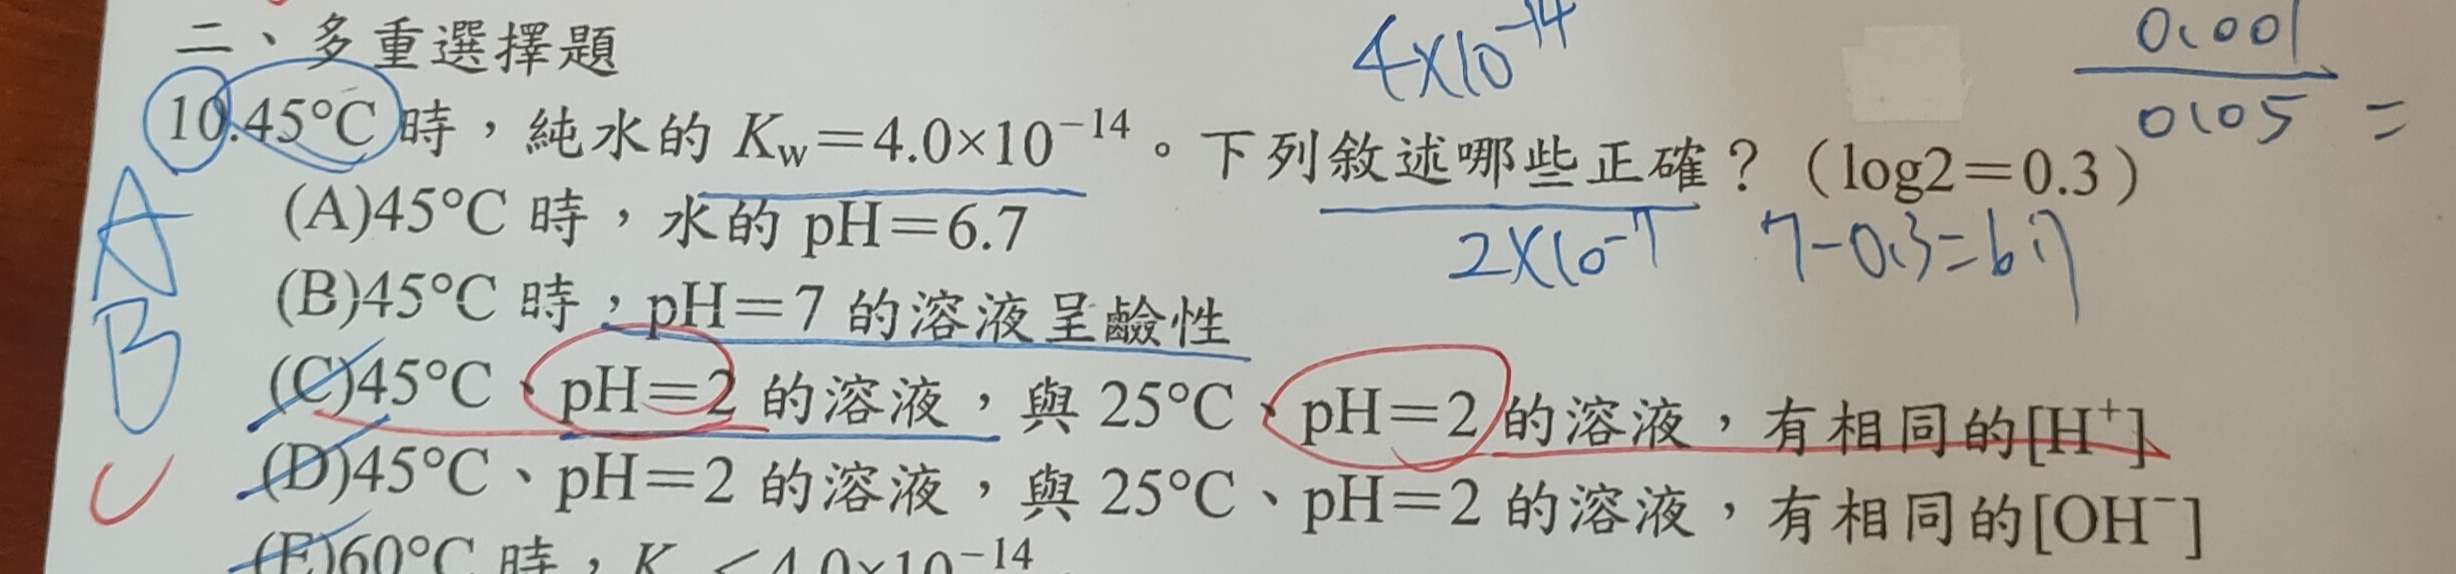 二、多重選擇題
4×10⁻¹⁴
0.001
0.05 =
10.45°C 時，純水的 Kw＝4.0×10⁻¹⁴。下列敘述哪些正確？（log2＝0.3）
A
(A)45°C 時，水的 pH＝6.7
2×10⁻⁷ 7-0.3=6.7
B
(B)45°C 時，pH＝7 的溶液呈鹼性
(C)45°C、pH＝2 的溶液，與 25°C、pH＝2 的溶液，有相同的[H⁺]
C
(D)45°C、pH＝2 的溶液，與 25°C、pH＝2 的溶液，有相同的[OH⁻]
(E)60°C 時，K ＜4.0×10⁻¹⁴